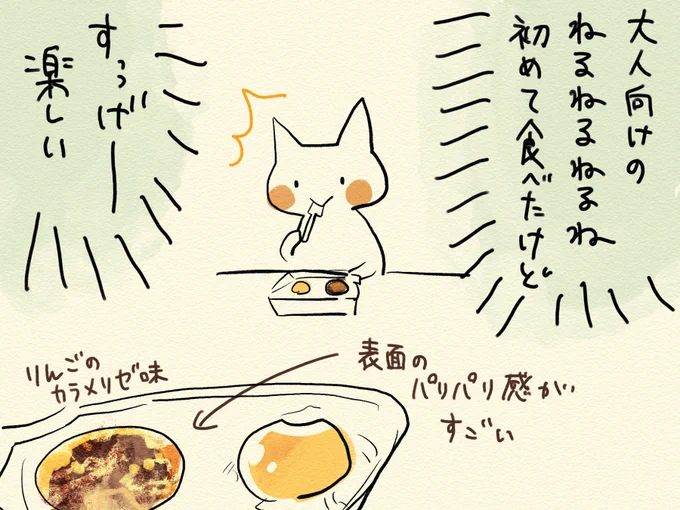 大人向けの
ねるねるねるね
初めて食べたけど
すっげーー
楽しい
りんごの
カラメリゼ味
表面の
パリパリ感が
すごい